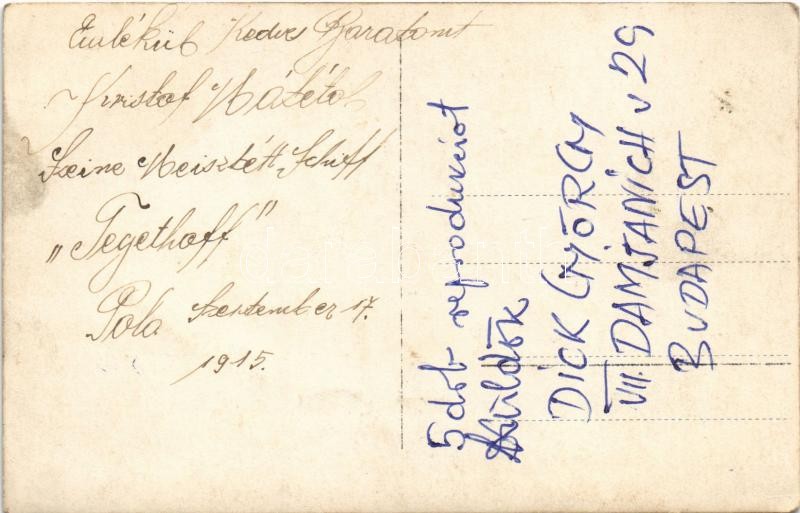 Emlékül Kedves Baratomt
Kristof Mátétol
Seine Meisztétt Schiff
„Tegethoff"
Pola Szeptember 17.
1915.
5 db reprodukciot
küldök
DICK GYÖRGY
VII. DAMJANICH u 29
BUDAPEST